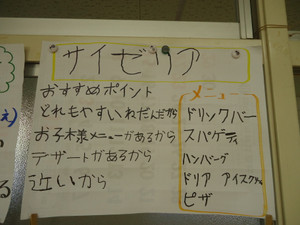 サイゼリア
おすすめポイント
どれもやすいねだんだから
お子様メニューがあるから
デザートがあるから
近いから
メニュー
ドリンクバー
スパゲティ
ハンバーグ
ドリア アイスクリーム
ピザ